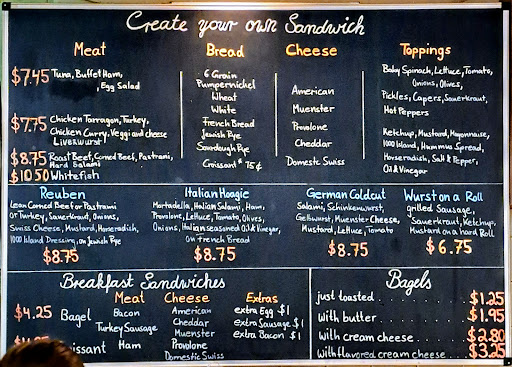 Create your own Sandwich
Meat
$7.45 Tuna, Buffet Ham,
, Egg Salad
$7.75 Chicken Tarragon, Turkey,
Chicken Curry, Veggi and cheese
Liverwurst
$8.75 Roast Beef, Corned Beef, Pastrami,
Hard Salami
$10.50 Whitefish
Bread
6 Grain
Pumpernickel
Wheat
White
French Bread
Jewish Rye
Sourdough Rye
Croissant * 75¢
Cheese
American
Muenster
Provolone
Cheddar
Domestic Swiss
Toppings
Baby Spinach, Lettuce, Tomato,
Onions, Olives,
Pickles, Capers, Sauerkraut,
Hot Peppers
Ketchup, Mustard, Mayonnaise,
1000 Island, Hummus Spread,
Horseradish, Salt & Pepper,
Oil & Vinegar
Reuben
Lean Corned Beef or Pastrami
or Turkey, Sauerkraut, Onions,
Swiss Cheese, Mustard, Horseradish,
1000 Island Dressing, on Jewish Rye
$8.75
Italian Hoagie
Mortadella, Italian Salami, Ham,
Provolone, Lettuce, Tomato, Olives,
Onions, Italian seasoned Oil & Vinegar,
on French Bread
$8.75
German Coldcut
Salami, Schinkenwurst,
Gelbwurst, Muenster Cheese,
Mustard, Lettuce, Tomato
$8.75
Wurst on a Roll
Grilled Sausage,
Sauerkraut, Ketchup,
Mustard on a hard Roll
$6.75
Breakfast Sandwiches
Meat Cheese Extras
$4.25 Bagel Bacon American extra Egg $1
Turkey Sausage Cheddar extra Sausage $1
Muenster extra Bacon $1
issant Ham Provolone
Domestic Swiss
Bagels
just toasted . . . . . . . . . . $1.25
with butter . . . . . . . . . . $1.95
with cream cheese . . . . . $2.80
with flavored cream cheese . . . $3.25